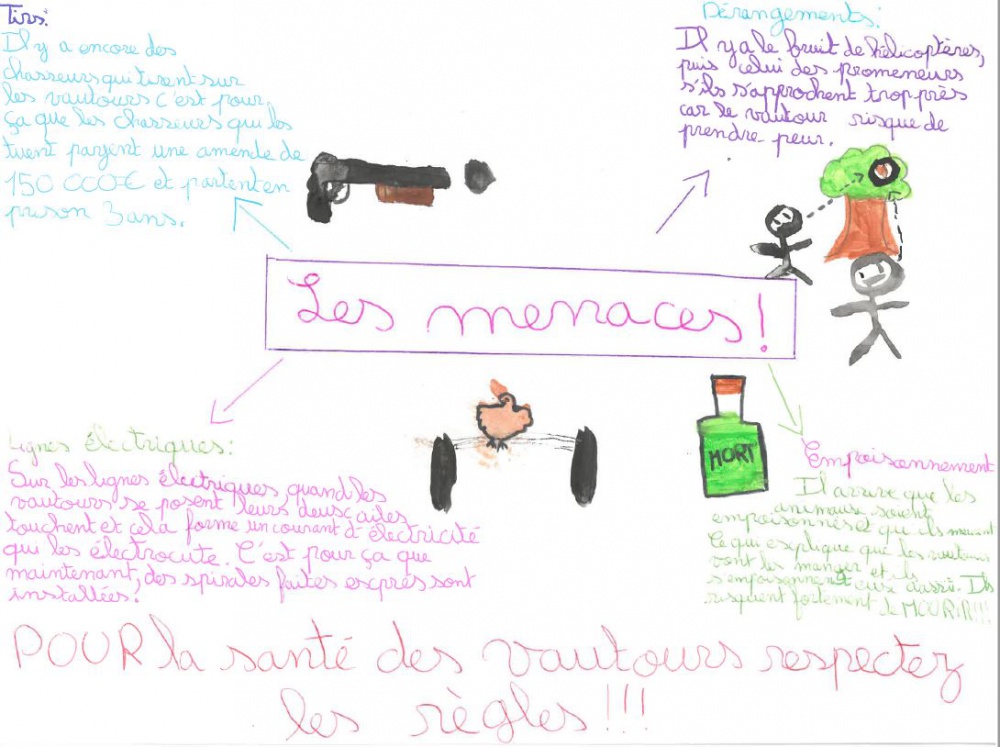 Tirs:
Il y a encore des
chasseurs qui tirent sur
les vautours c'est pour
ça que les chasseurs qui les
tuent payent une amende de
150 000€ et partent en
prison 3 ans.
Dérangements:
Il y a le bruit de hélicoptères,
puis celui des promeneurs
s'ils s'approchent trop près
car le vautour risque de
prendre peur.
Les menaces!
Lignes électriques:
Sur les lignes électriques, quand les
vautours se posent leurs deux ailes
touchent et cela forme un courant d'électricité
qui les électrocute. C'est pour ça que
maintenant, des spirales faites exprès sont
installées!
MORT
Empoisonnement
Il arrive que les
animaux soient
empoisonnés et qu'ils meurent
Ce qui explique que les vautours
vont les manger et ils
s'empoisonnent eux aussi. Ils
risquent fortement de MOURIR!!!
POUR la santé des vautours respectez
les règles!!!